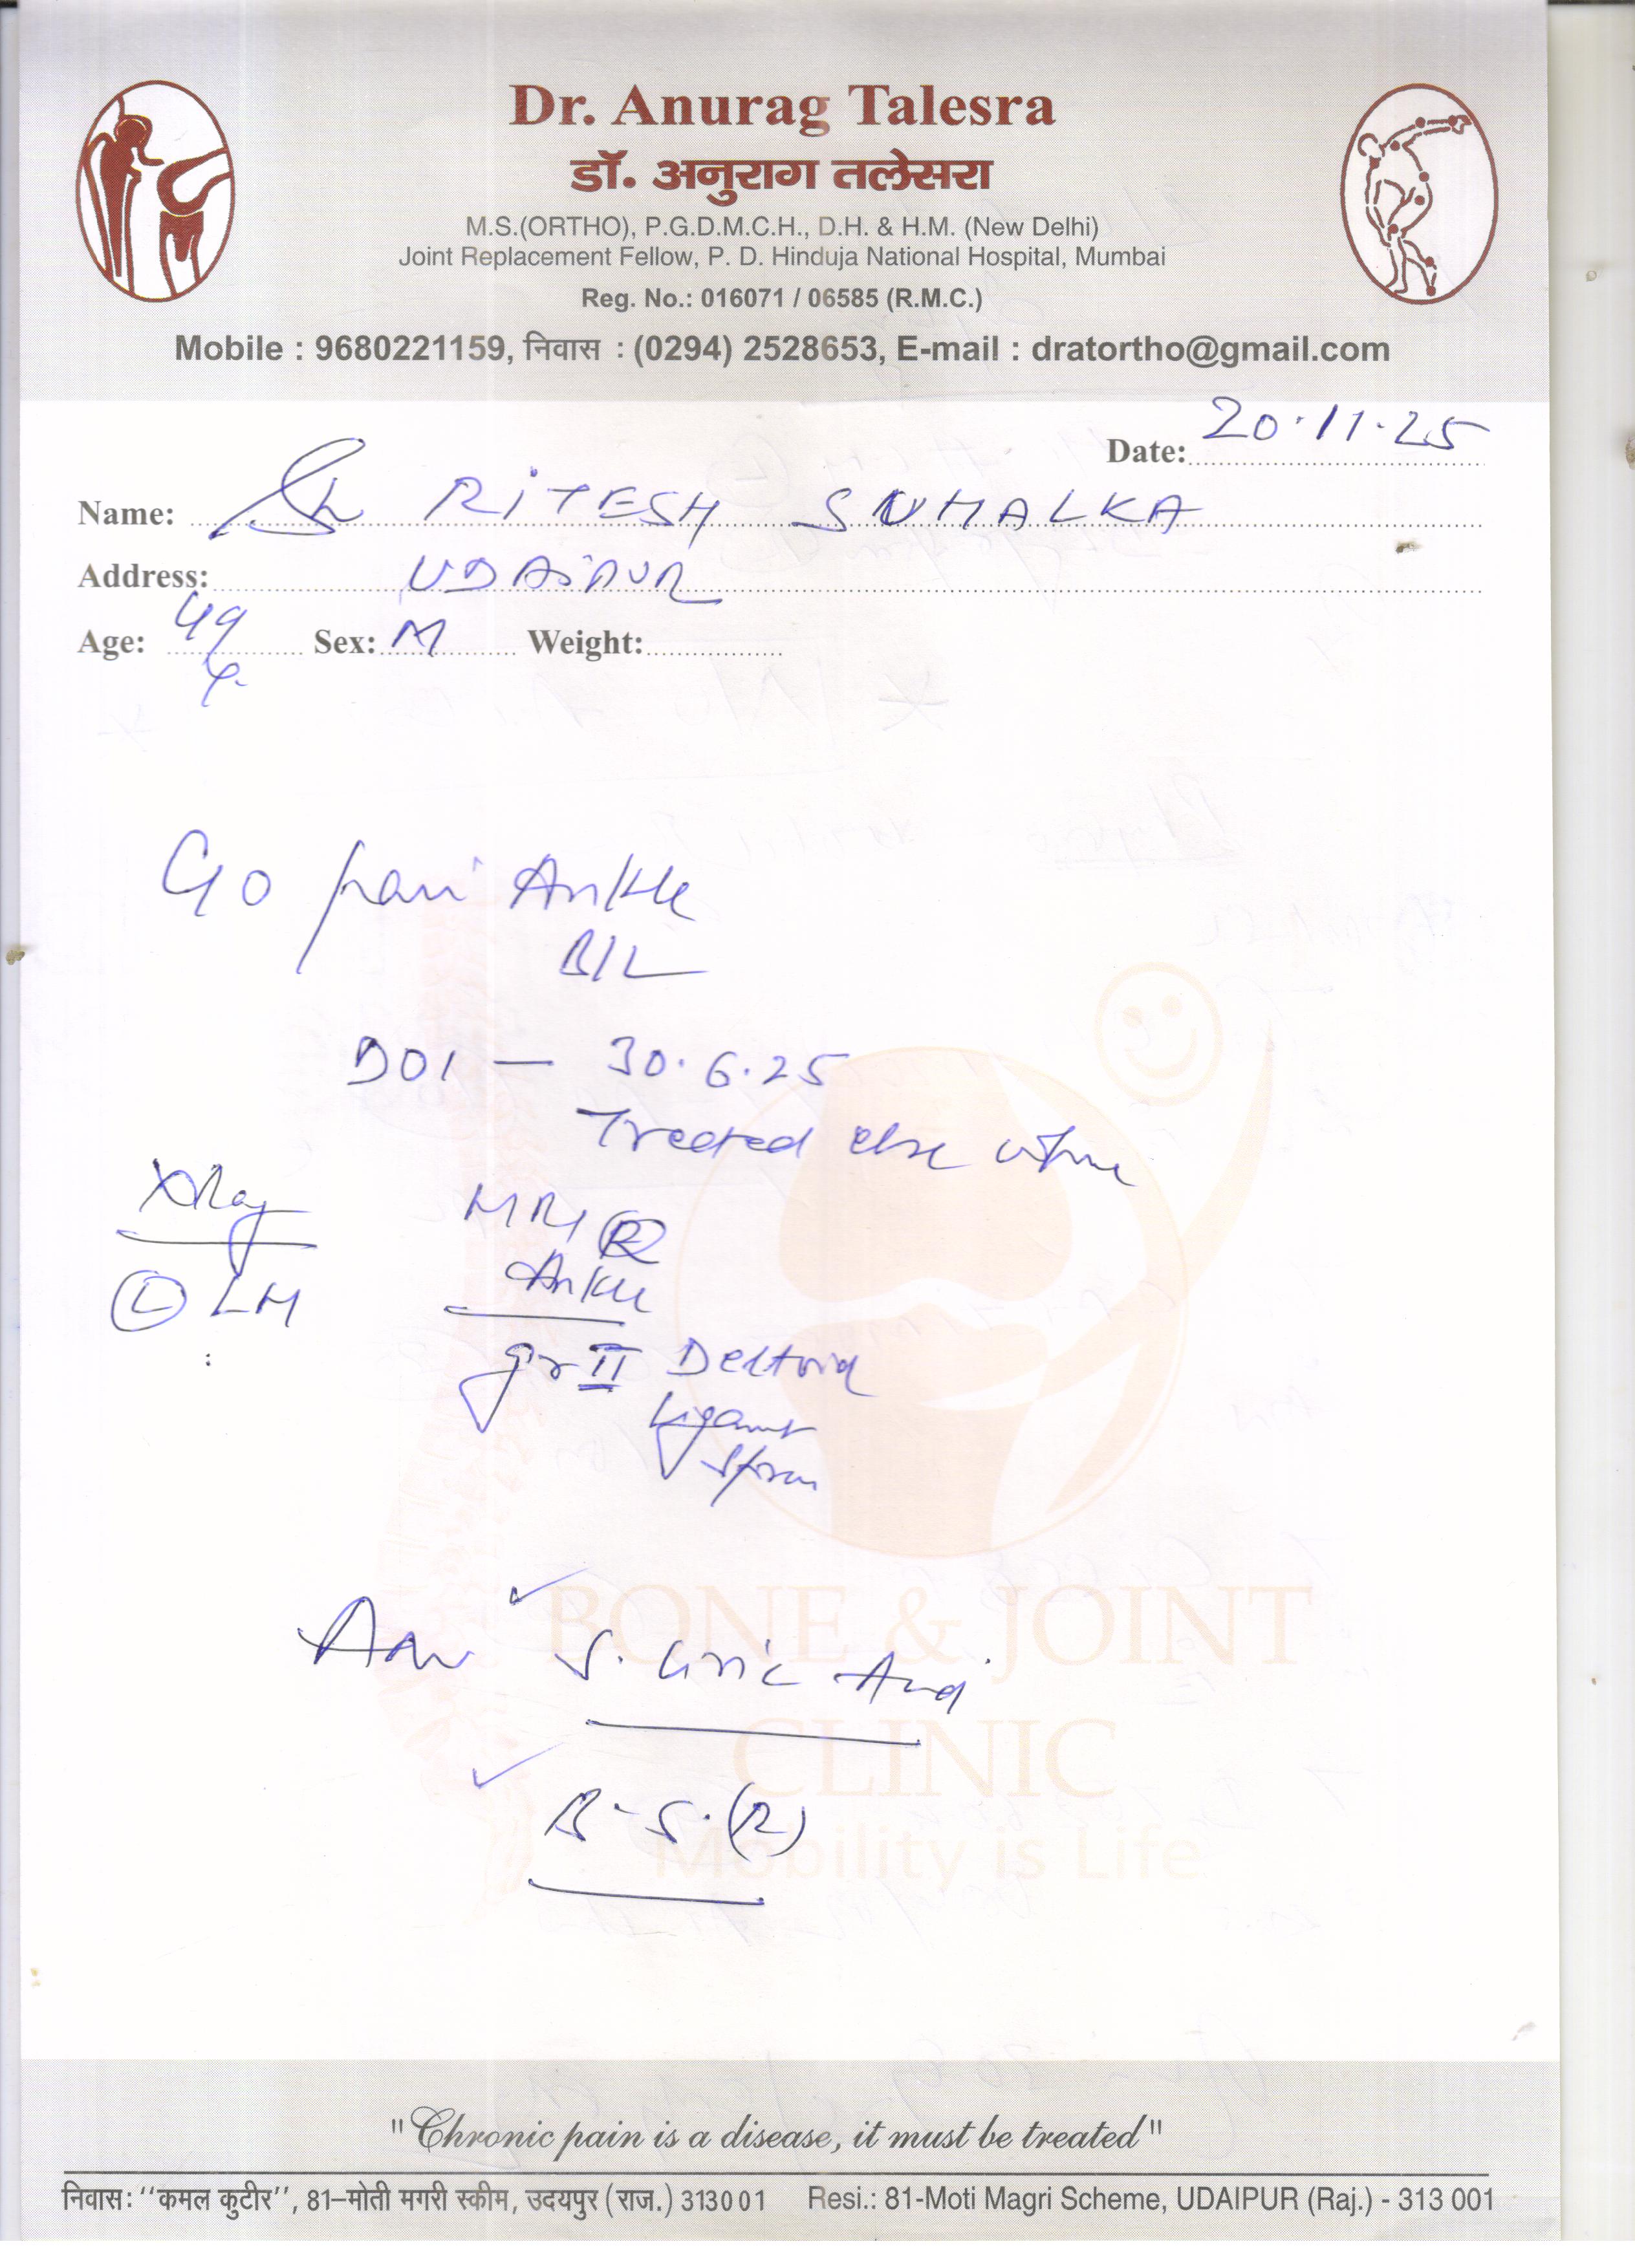 Dr. Anurag Talesra
डॉ. अनुराग तलेसरा
M.S.(ORTHO), P.G.D.M.C.H., D.H. & H.M. (New Delhi)
Joint Replacement Fellow, P. D. Hinduja National Hospital, Mumbai
Reg. No.: 016071 / 06585 (R.M.C.)
Mobile : 9680221159, निवास : (0294) 2528653, E-mail : dratortho@gmail.com
Date: 20.11.25
Name: Sh RITESH SUHALKA
Address: UDAIPUR
Age: 49 Y. Sex: M Weight:
C/O pain Ankle
B/L
DOI — 30.6.25
Treated else where
XRay
MRI (R)
Ankle
(L) LM
gr II Deltoid
Ligament
Sprain
Adv S. Uric Acid
B.S.(R)
BONE & JOINT
CLINIC
Mobility is Life
"Chronic pain is a disease, it must be treated"
निवास: ‘‘कमल कुटीर’’, 81–मोती मगरी स्कीम, उदयपुर (राज.) 313001 Resi.: 81-Moti Magri Scheme, UDAIPUR (Raj.) - 313 001